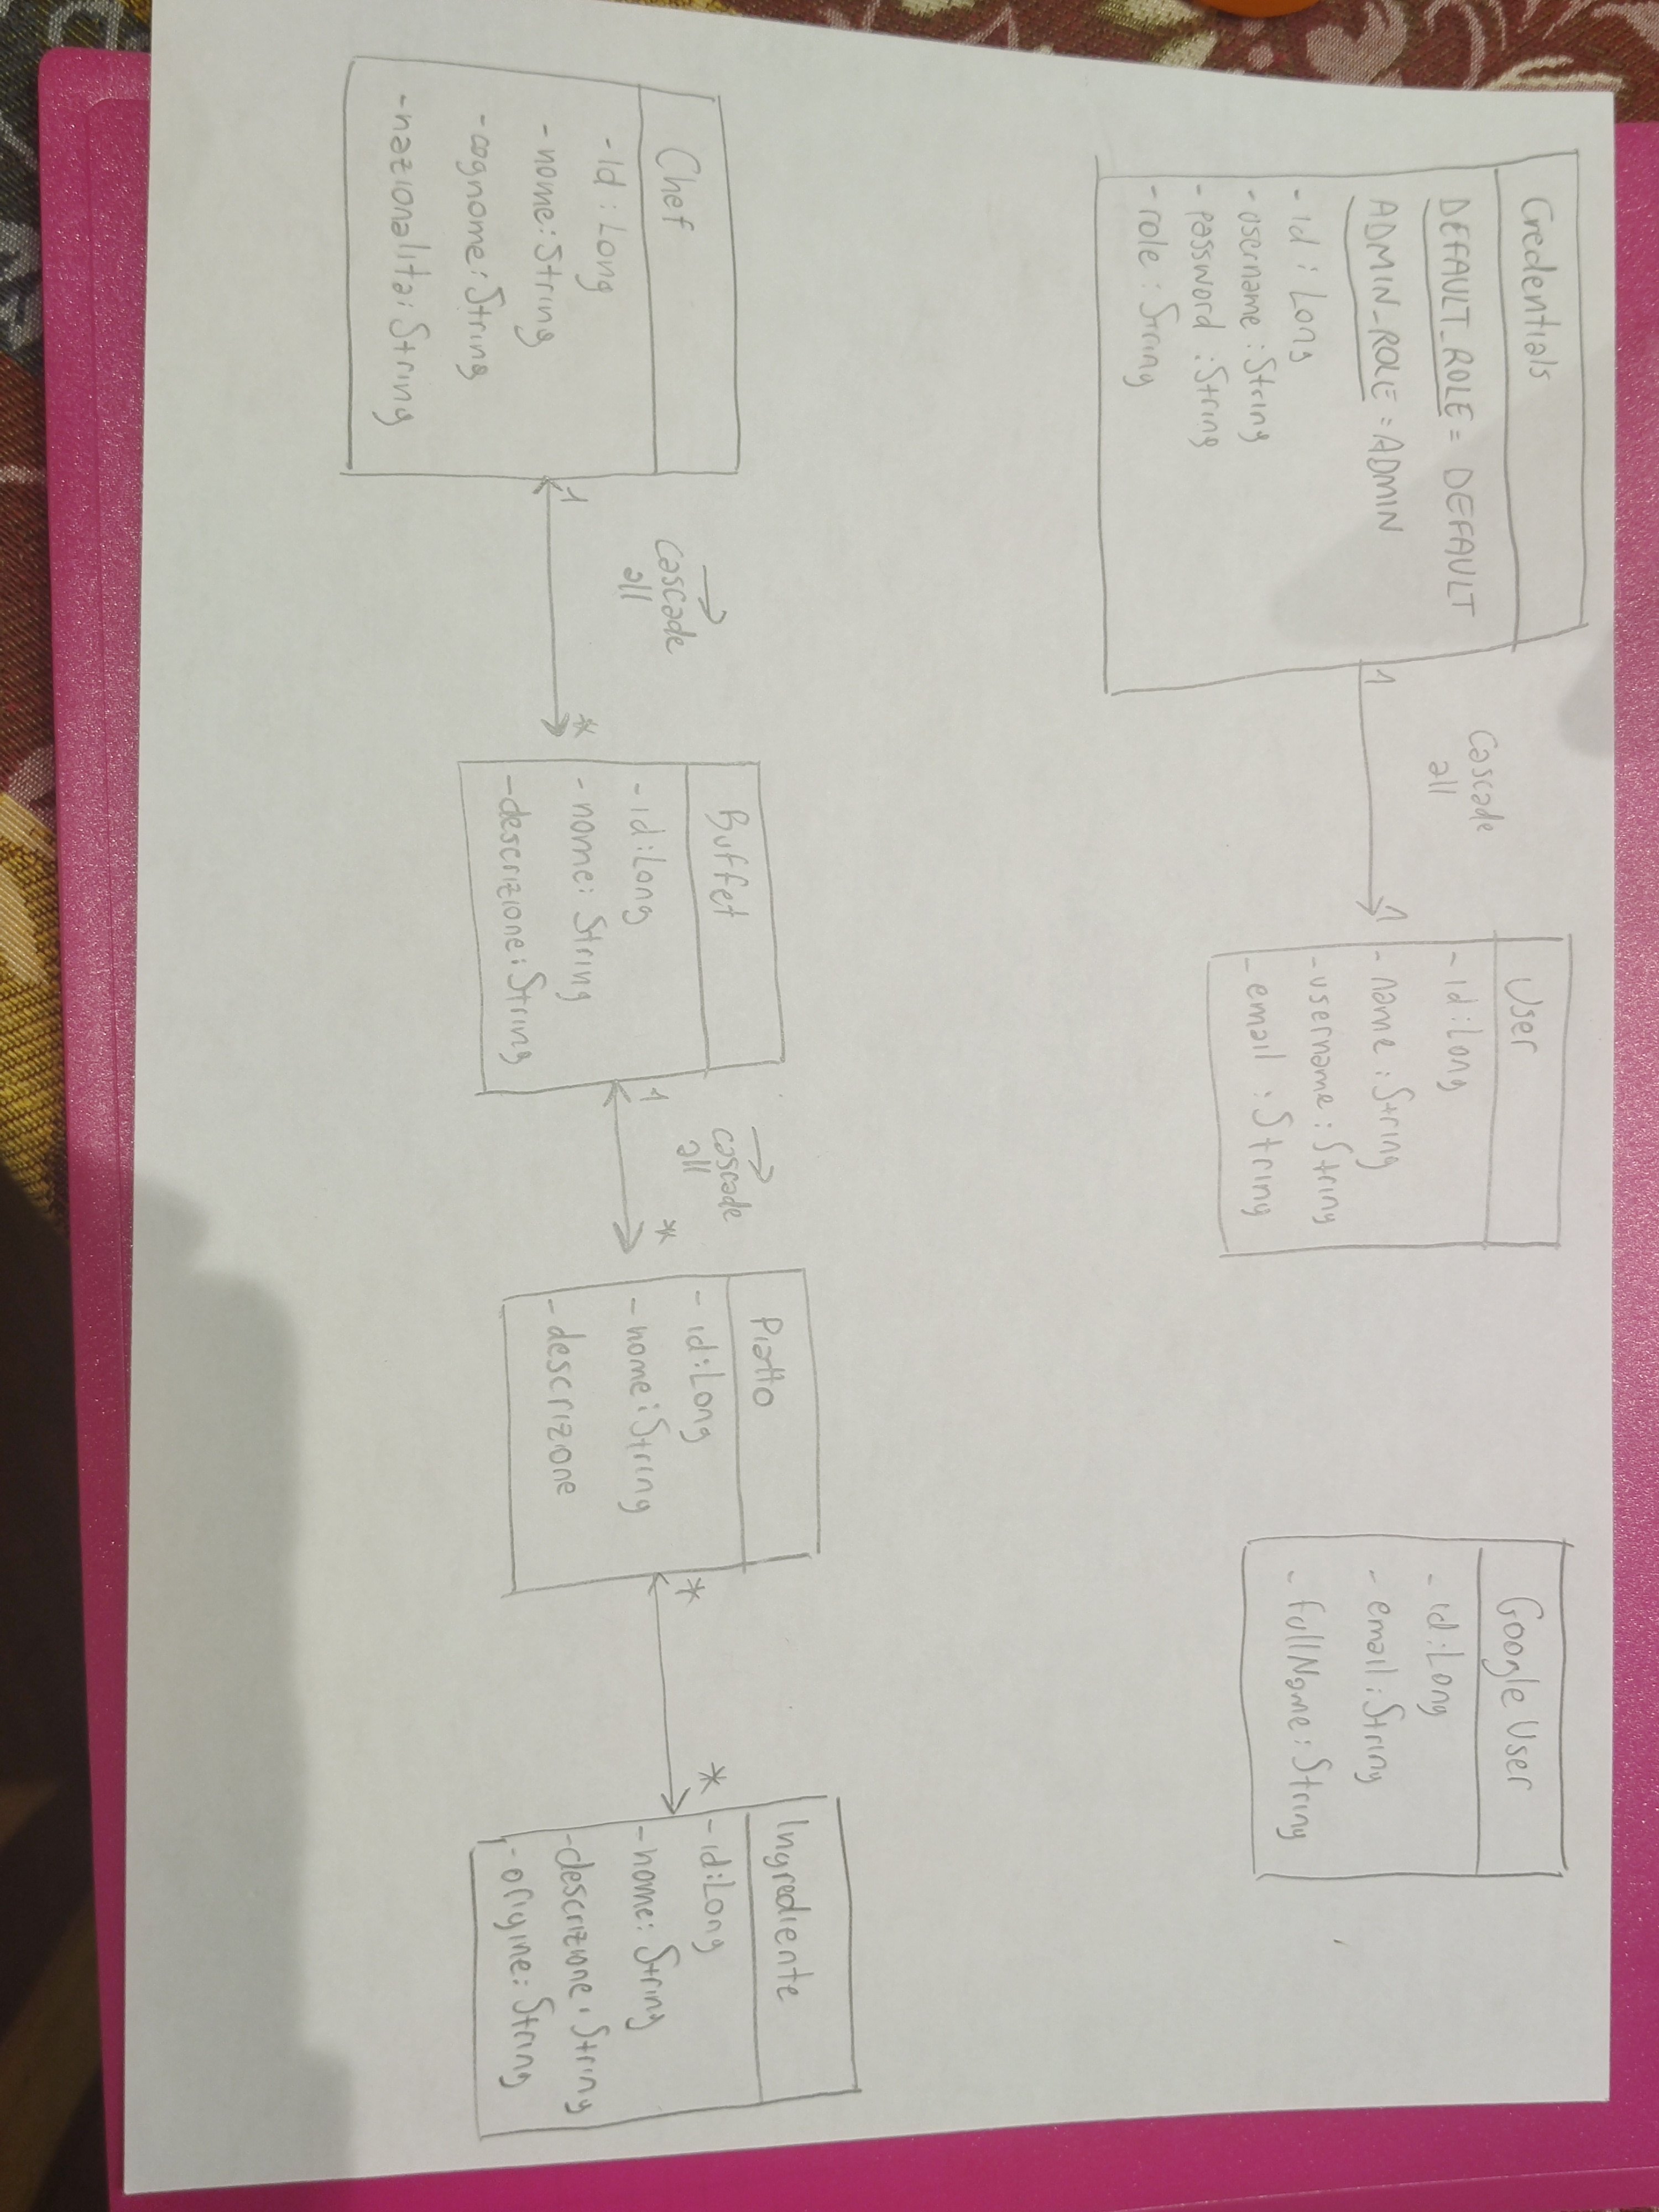 Credentials
DEFAULT_ROLE = DEFAULT
ADMIN_ROLE = ADMIN
- id : Long
- username : String
- password : String
- role : String
1
cascade
all
1
User
- id : Long
- name : String
- username : String
- email : String
Google User
- id : Long
- email : String
- fullName : String
Chef
- id : Long
- nome : String
- cognome : String
- nazionalita : String
1
→
cascade
all
*
Buffet
- id : Long
- nome : String
- descrizione : String
1
→
cascade
all
*
Piatto
- id : Long
- nome : String
- descrizione
*
*
Ingrediente
- id : Long
- nome : String
- descrizione : String
- origine : String